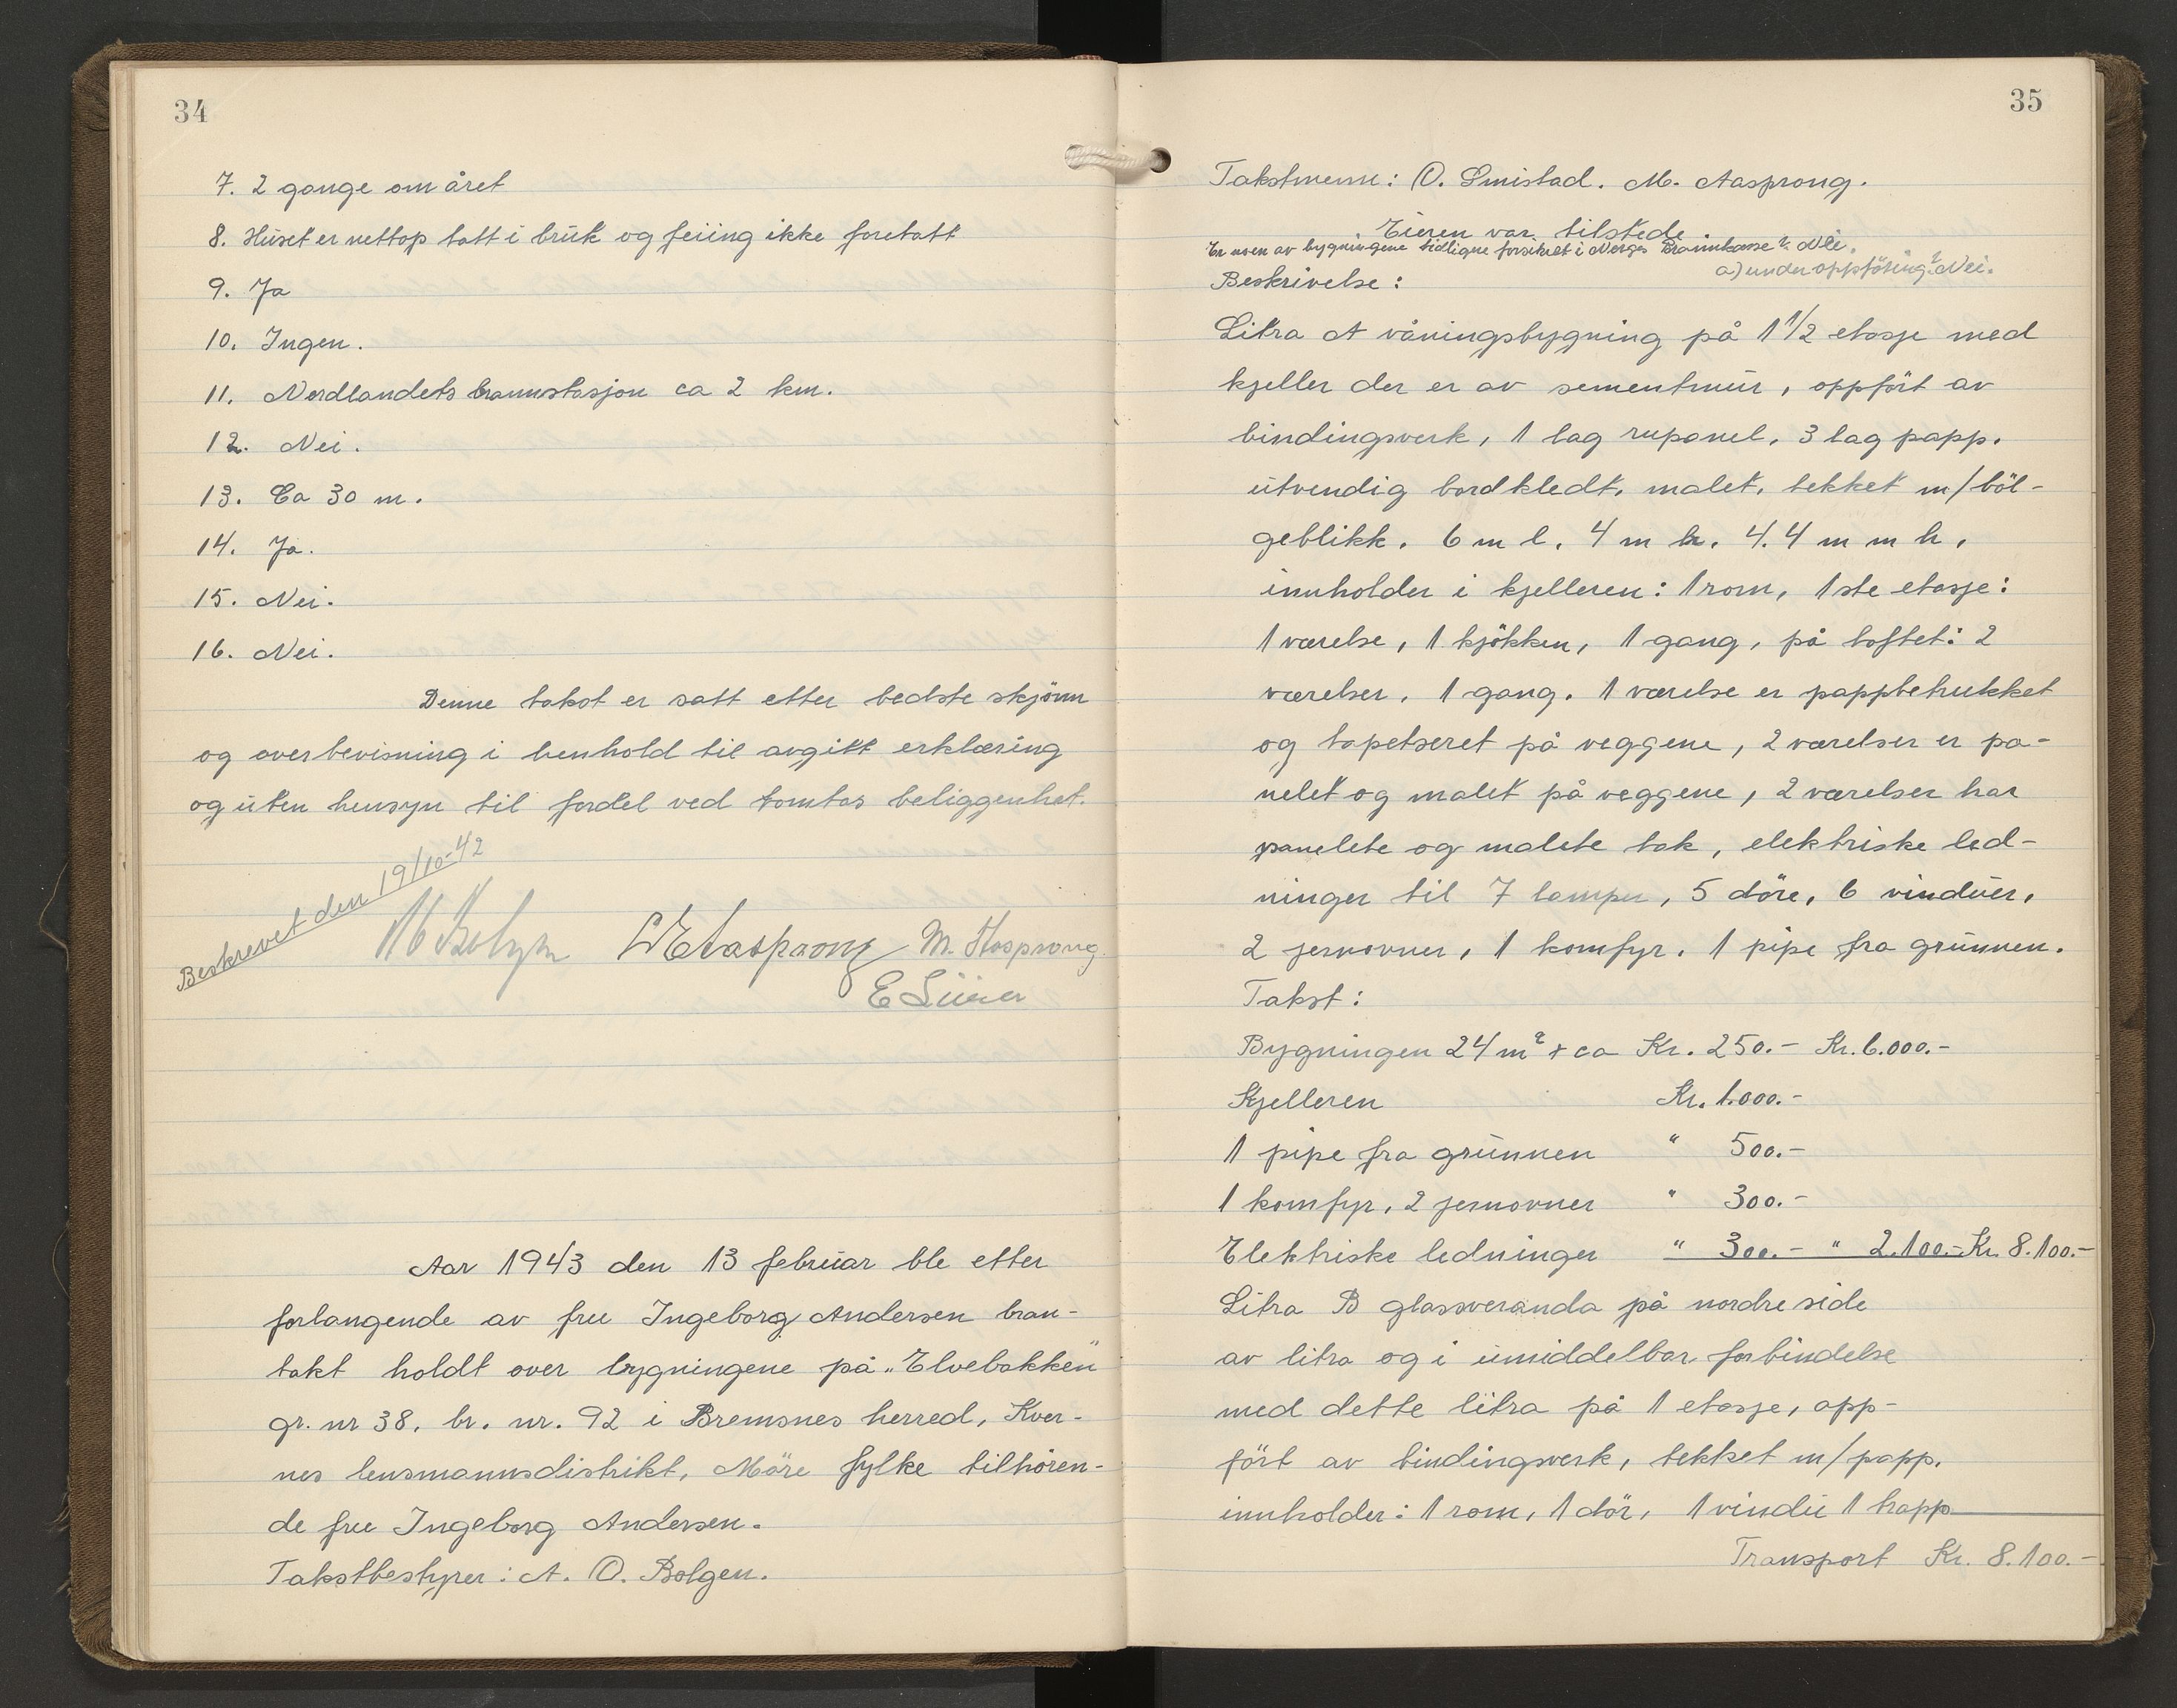 34
7. 2 gange om året
8. Huset er nettop tatt i bruk og feiing ikke foretatt
9. Ja
10. Ingen.
11. Nordlandets brannstasjon ca 2 km.
12. Nei.
13. Ca 30 m.
14. Ja.
15. Nei.
16. Nei.
Denne takst er satt etter bedste skjönn
og overbevisning i henhold til avgitt erklæring
og uten hensyn til fordel ved tomtas beliggenhet.
Beskrevet den 19/10-42
M. Aasprong
Aar 1943 den 13 februar ble etter
forlangende av fru Ingeborg Andersen bran-
takt holdt over bygningene på „Elvebakken"
gr. nr 38. br. nr. 92 i Bremsnes herred, Kver-
nes lensmannsdistrikt, Möre fylke tilhören-
de fru Ingeborg Andersen.
Takstbestyrer: A. O. Bolgen.
35
Takstmenn: O. Smistad. M. Aasprong.
Eieren var tilstede.
Er noen av bygningene tidligere forsikret i Norges Brannkasse? Nei.
a) under oppföring? Nei.
Beskrivelse:
Litra A våningsbygning på 1 1/2 etasje med
kjeller der er av sementmur, oppfört av
bindingsverk, 1 lag rupanel, 3 lag papp.
utvendig bordkledt, malet, tekket m/böl-
geblikk. 6 m l. 4 m b. 4.4 m m h.
innholder i kjelleren: 1 rom, 1ste etasje:
1 værelse, 1 kjökken, 1 gang, på loftet: 2
værelser, 1 gang. 1 værelse er pappbetrukket
og tapetseret på veggene, 2 værelser er pa-
nelet og malet på veggene, 2 værelser har
panelete og malete tak, elektriske led-
ninger til 7 lamper, 5 döre, 6 vinduer,
2 jernovner, 1 komfyr, 1 pipe fra grunnen.
Takst:
Bygningen 24 m² + ca Kr. 250.- Kr. 6.000.-
Kjelleren Kr. 1.000.-
1 pipe fra grunnen " 500.-
1 komfyr, 2 jernovner " 300.-
Elektriske ledninger " 300.- " 2.100.- Kr. 8.100.-
Litra B glassveranda på nordre side
av litra og i umiddelbar forbindelse
med dette litra på 1 etasje, opp-
fört av bindingsverk, tekket m/papp.
innholder: 1 rom, 1 dör, 1 vindu 1 trapp
Transport Kr. 8.100.-